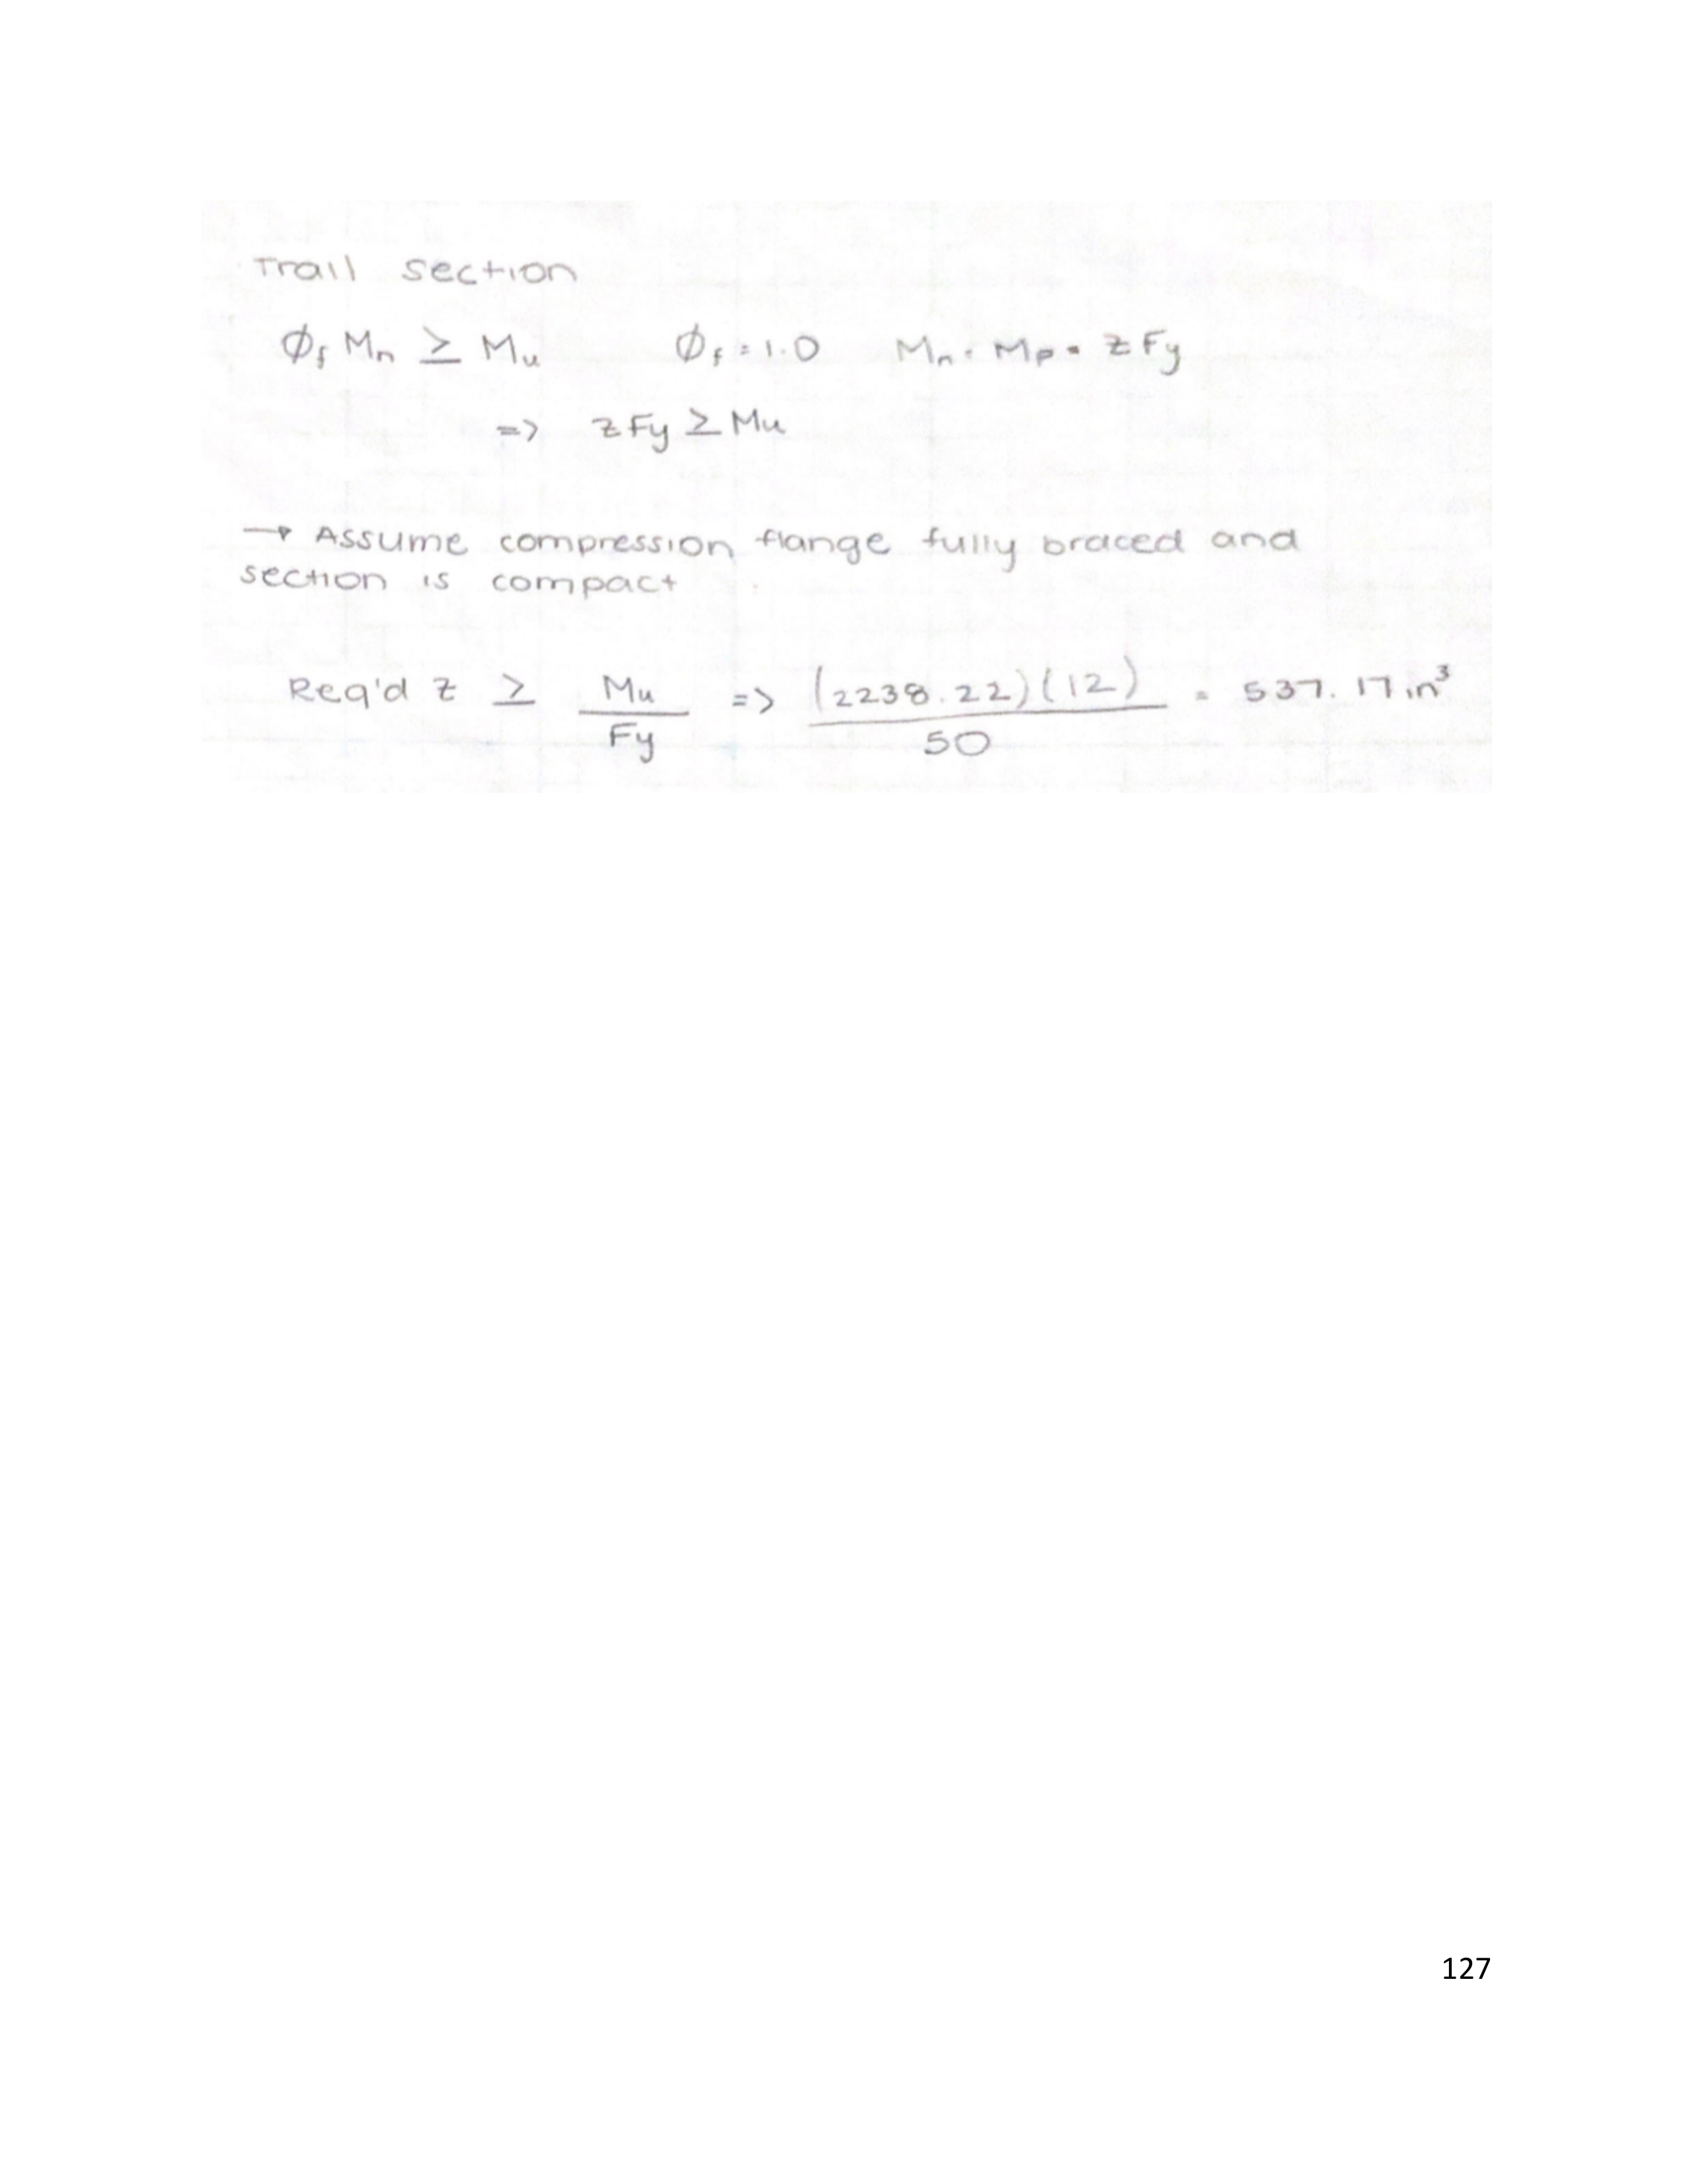 Trail section
Øf Mn ≥ Mu Øf = 1.0 Mn = Mp = Z Fy
=> Z Fy ≥ Mu
→ Assume compression flange fully braced and
section is compact
Req'd Z ≥ Mu / Fy => (2238.22)(12) / 50 = 537.17 in³
127